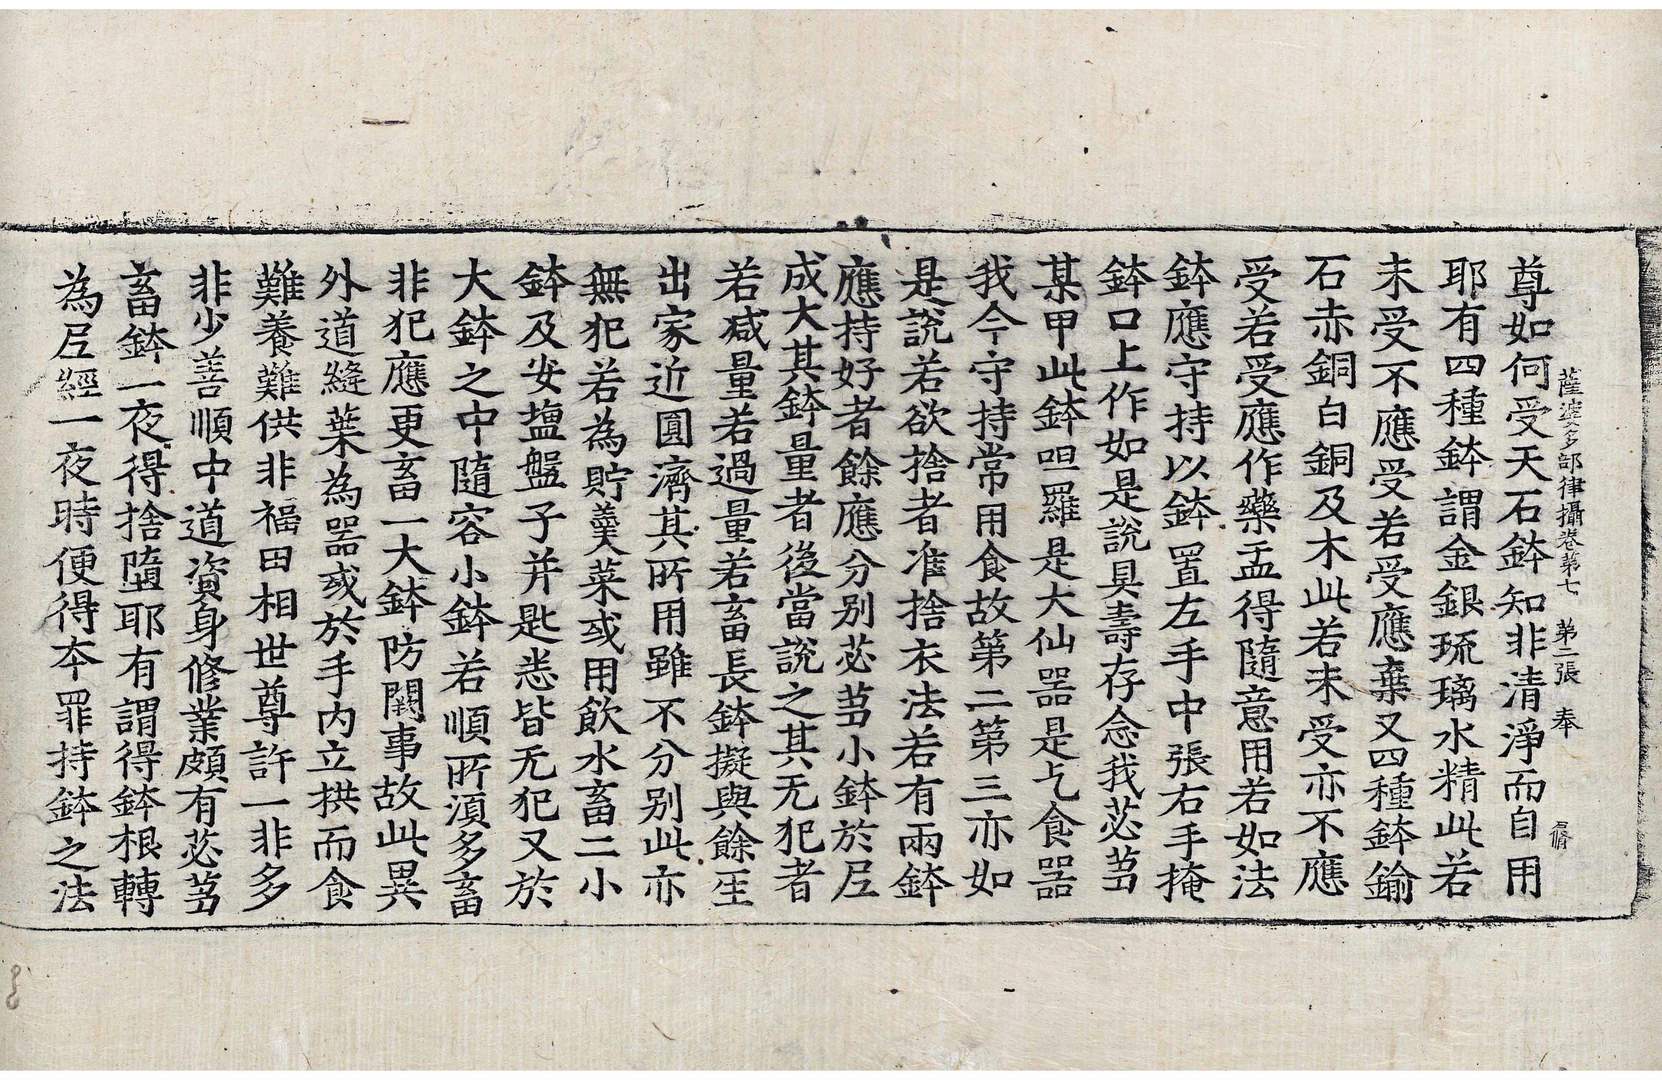 薩婆多部律攝卷第七 第二張 奉
尊如何受天石鉢知非清淨而自用
耶有四種鉢謂金銀琉璃水精此若
未受不應受若受應棄又四種鉢鍮
石赤銅白銅及木此若未受亦不應
受若受應作藥盂得隨意用若如法
鉢應守持以鉢置左手中張右手掩
鉢口上作如是說具壽存念我苾芻
某甲此鉢呾羅是大仙器是乞食器
我今守持常用食故第二第三亦如
是說若欲捨者准捨衣法若有兩鉢
應持好者餘應分别苾芻小鉢於尼
成大其鉢量者後當説之其无犯者
若減量若過量若畜長鉢擬與餘人
出家近圓濟其所用雖不分别此亦
無犯若為貯羹菜或用飲水畜二小
鉢及安塩盤子并匙悉皆无犯又於
大鉢之中隨容小鉢若順所湏多畜
非犯應更畜一大鉢防闕事故此異
外道縫葉為器或於手內立拱而食
難養難供非福田相世尊許一非多
非少善順中道資身修業頗有苾芻
畜鉢一夜得捨墮耶有謂得鉢根轉
為尼經一夜時便得本罪持鉢之法